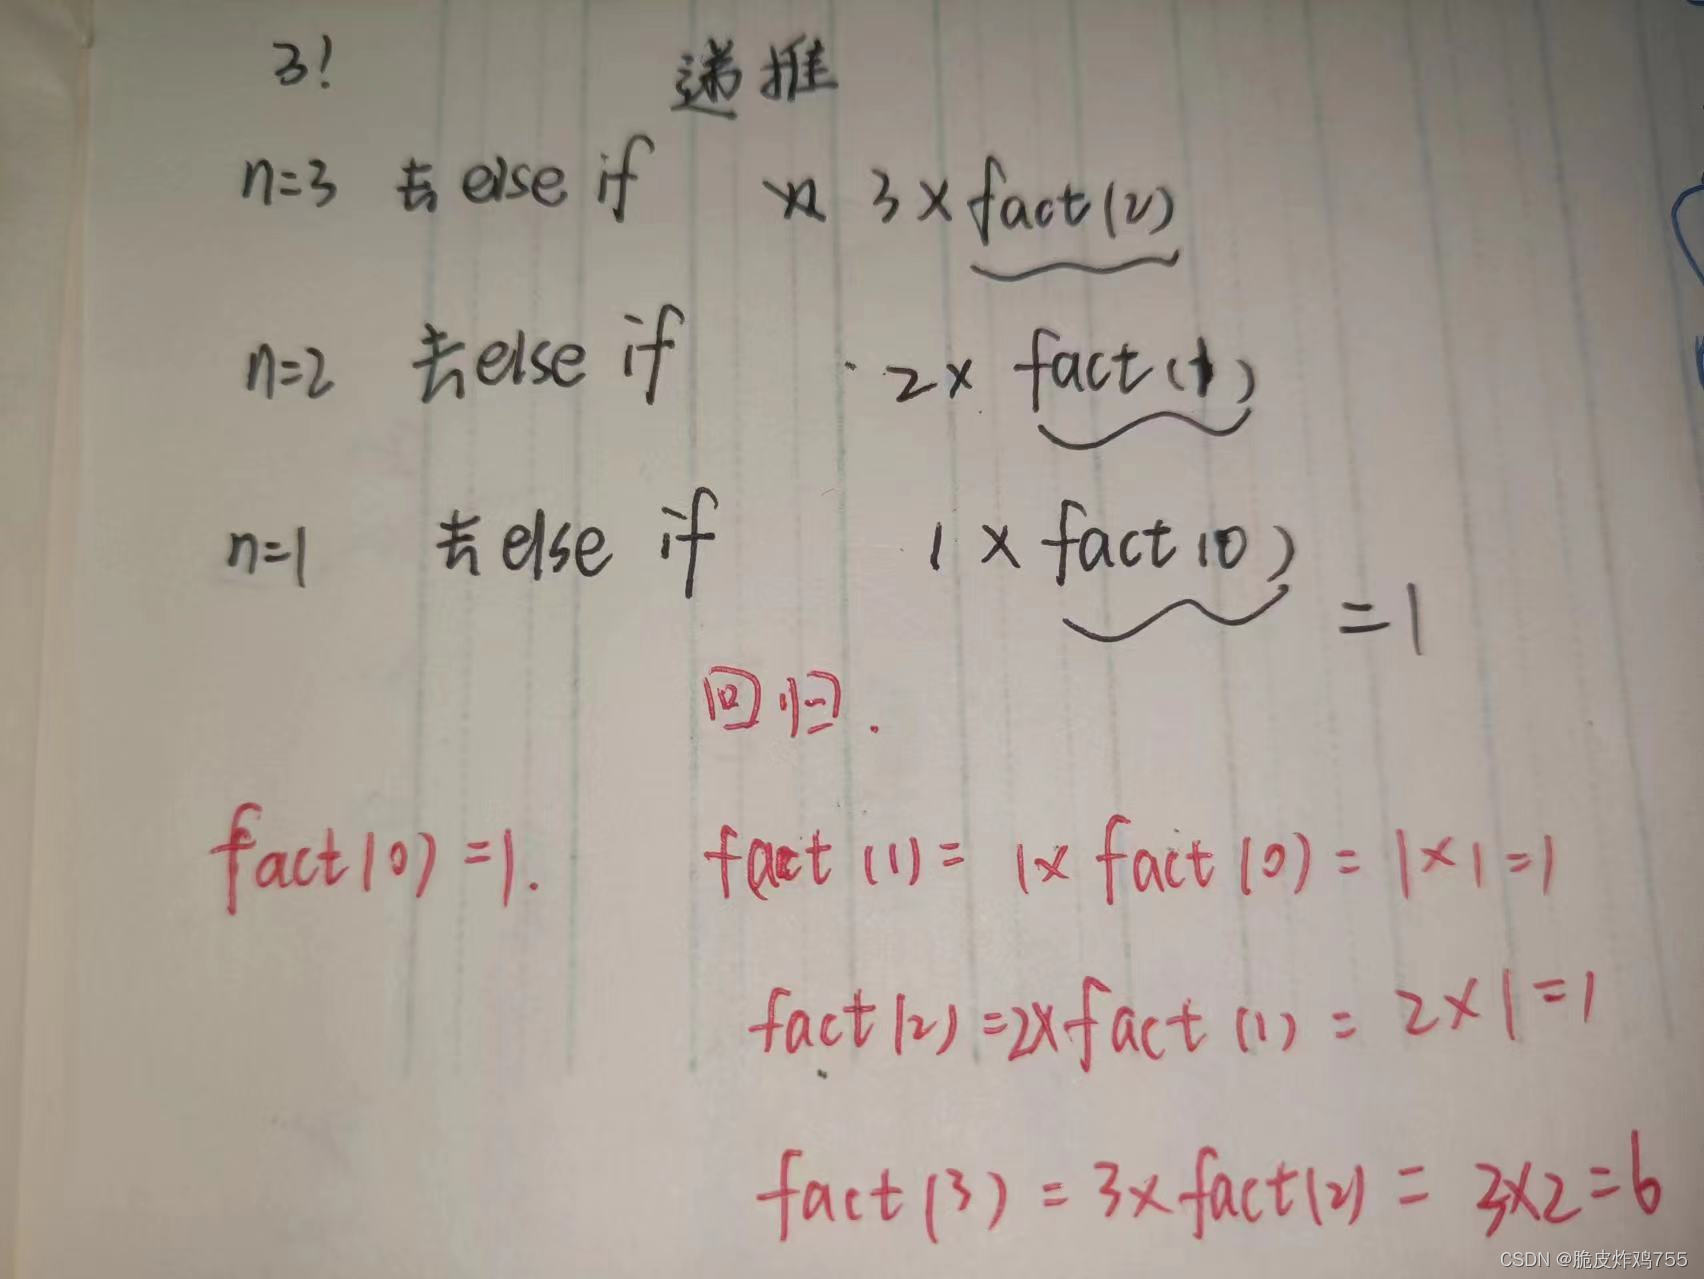 3! 递推
n=3 去else if 3×fact(2)
n=2 去else if 2× fact(1)
n=1 去else if 1×fact(0) =1
回归.
fact(0)=1. fact(1)= 1×fact(0)= 1×1=1
fact(2)=2×fact(1)= 2×1=1
fact(3)=3×fact(2)= 3×2=6
CSDN @脆皮炸鸡755